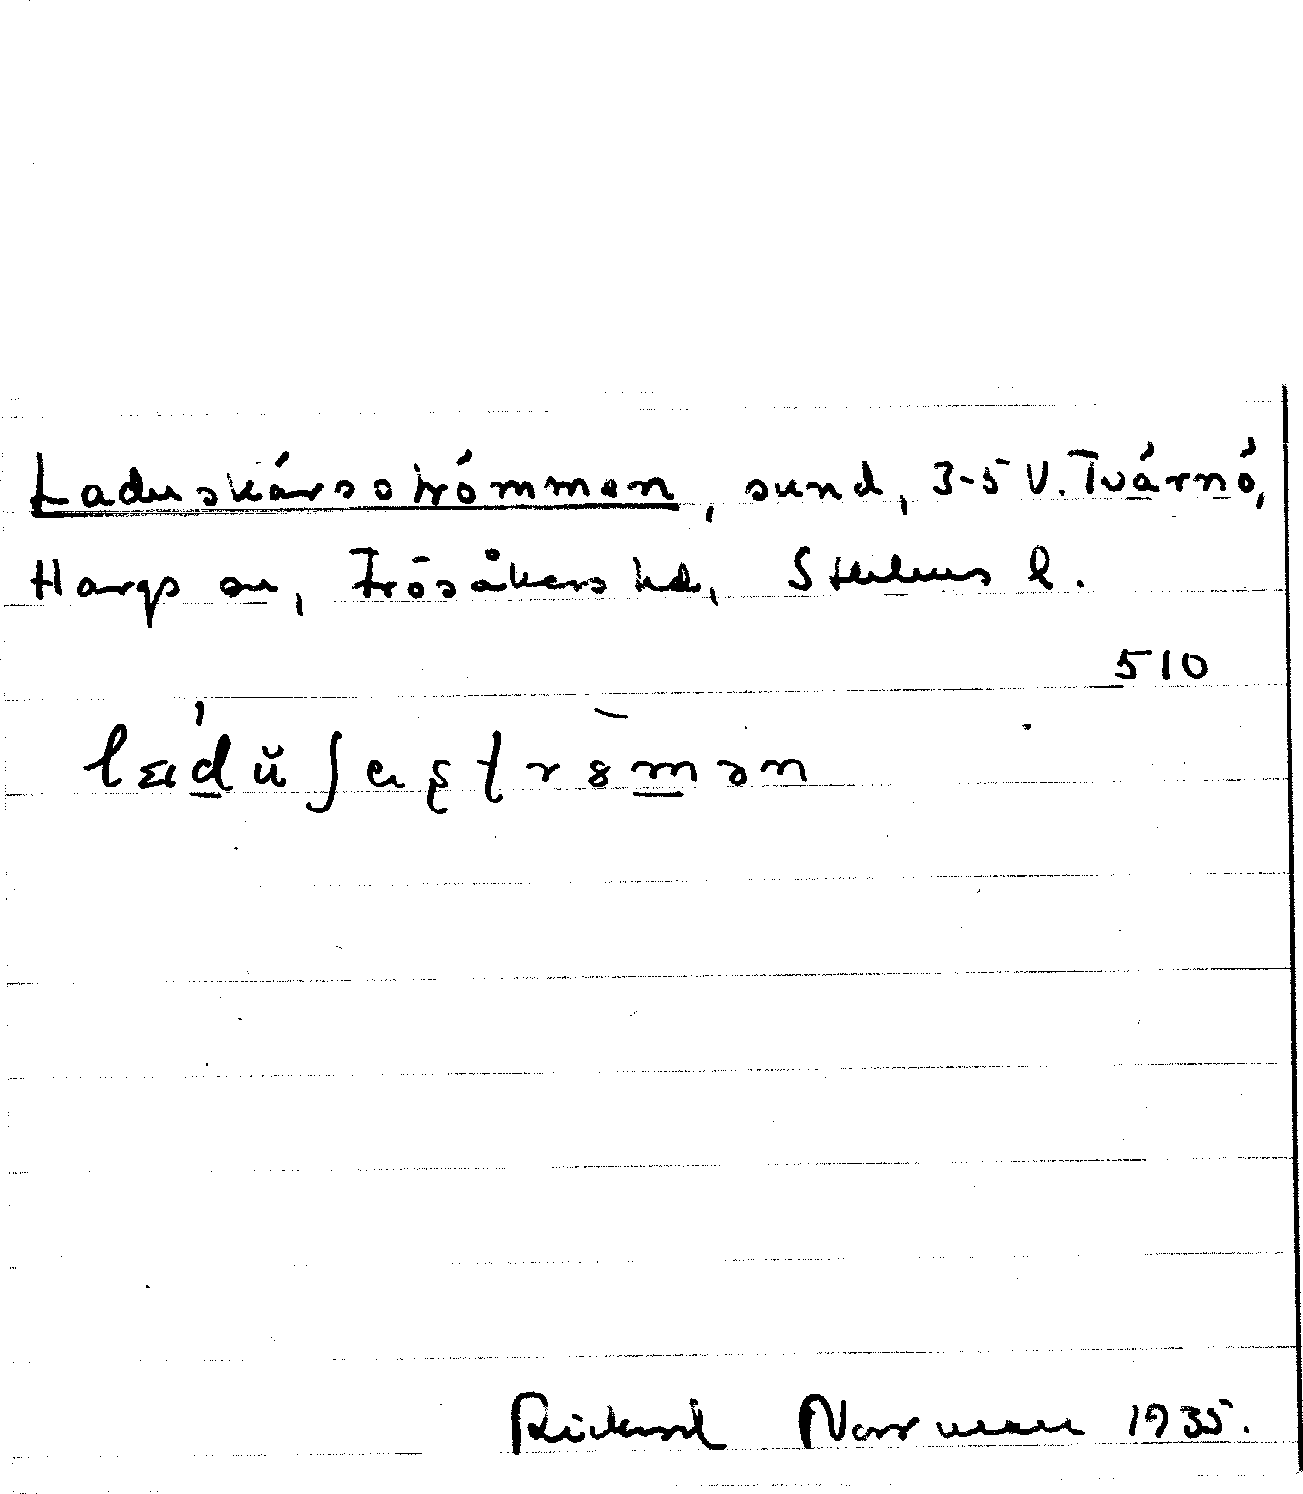 Laduskärsströmmen, sund, 3-5 V. Tvärnö,
Hargs sn, Frösåkers hd, Sthlms l.
510
Rickard Norrman 1935.